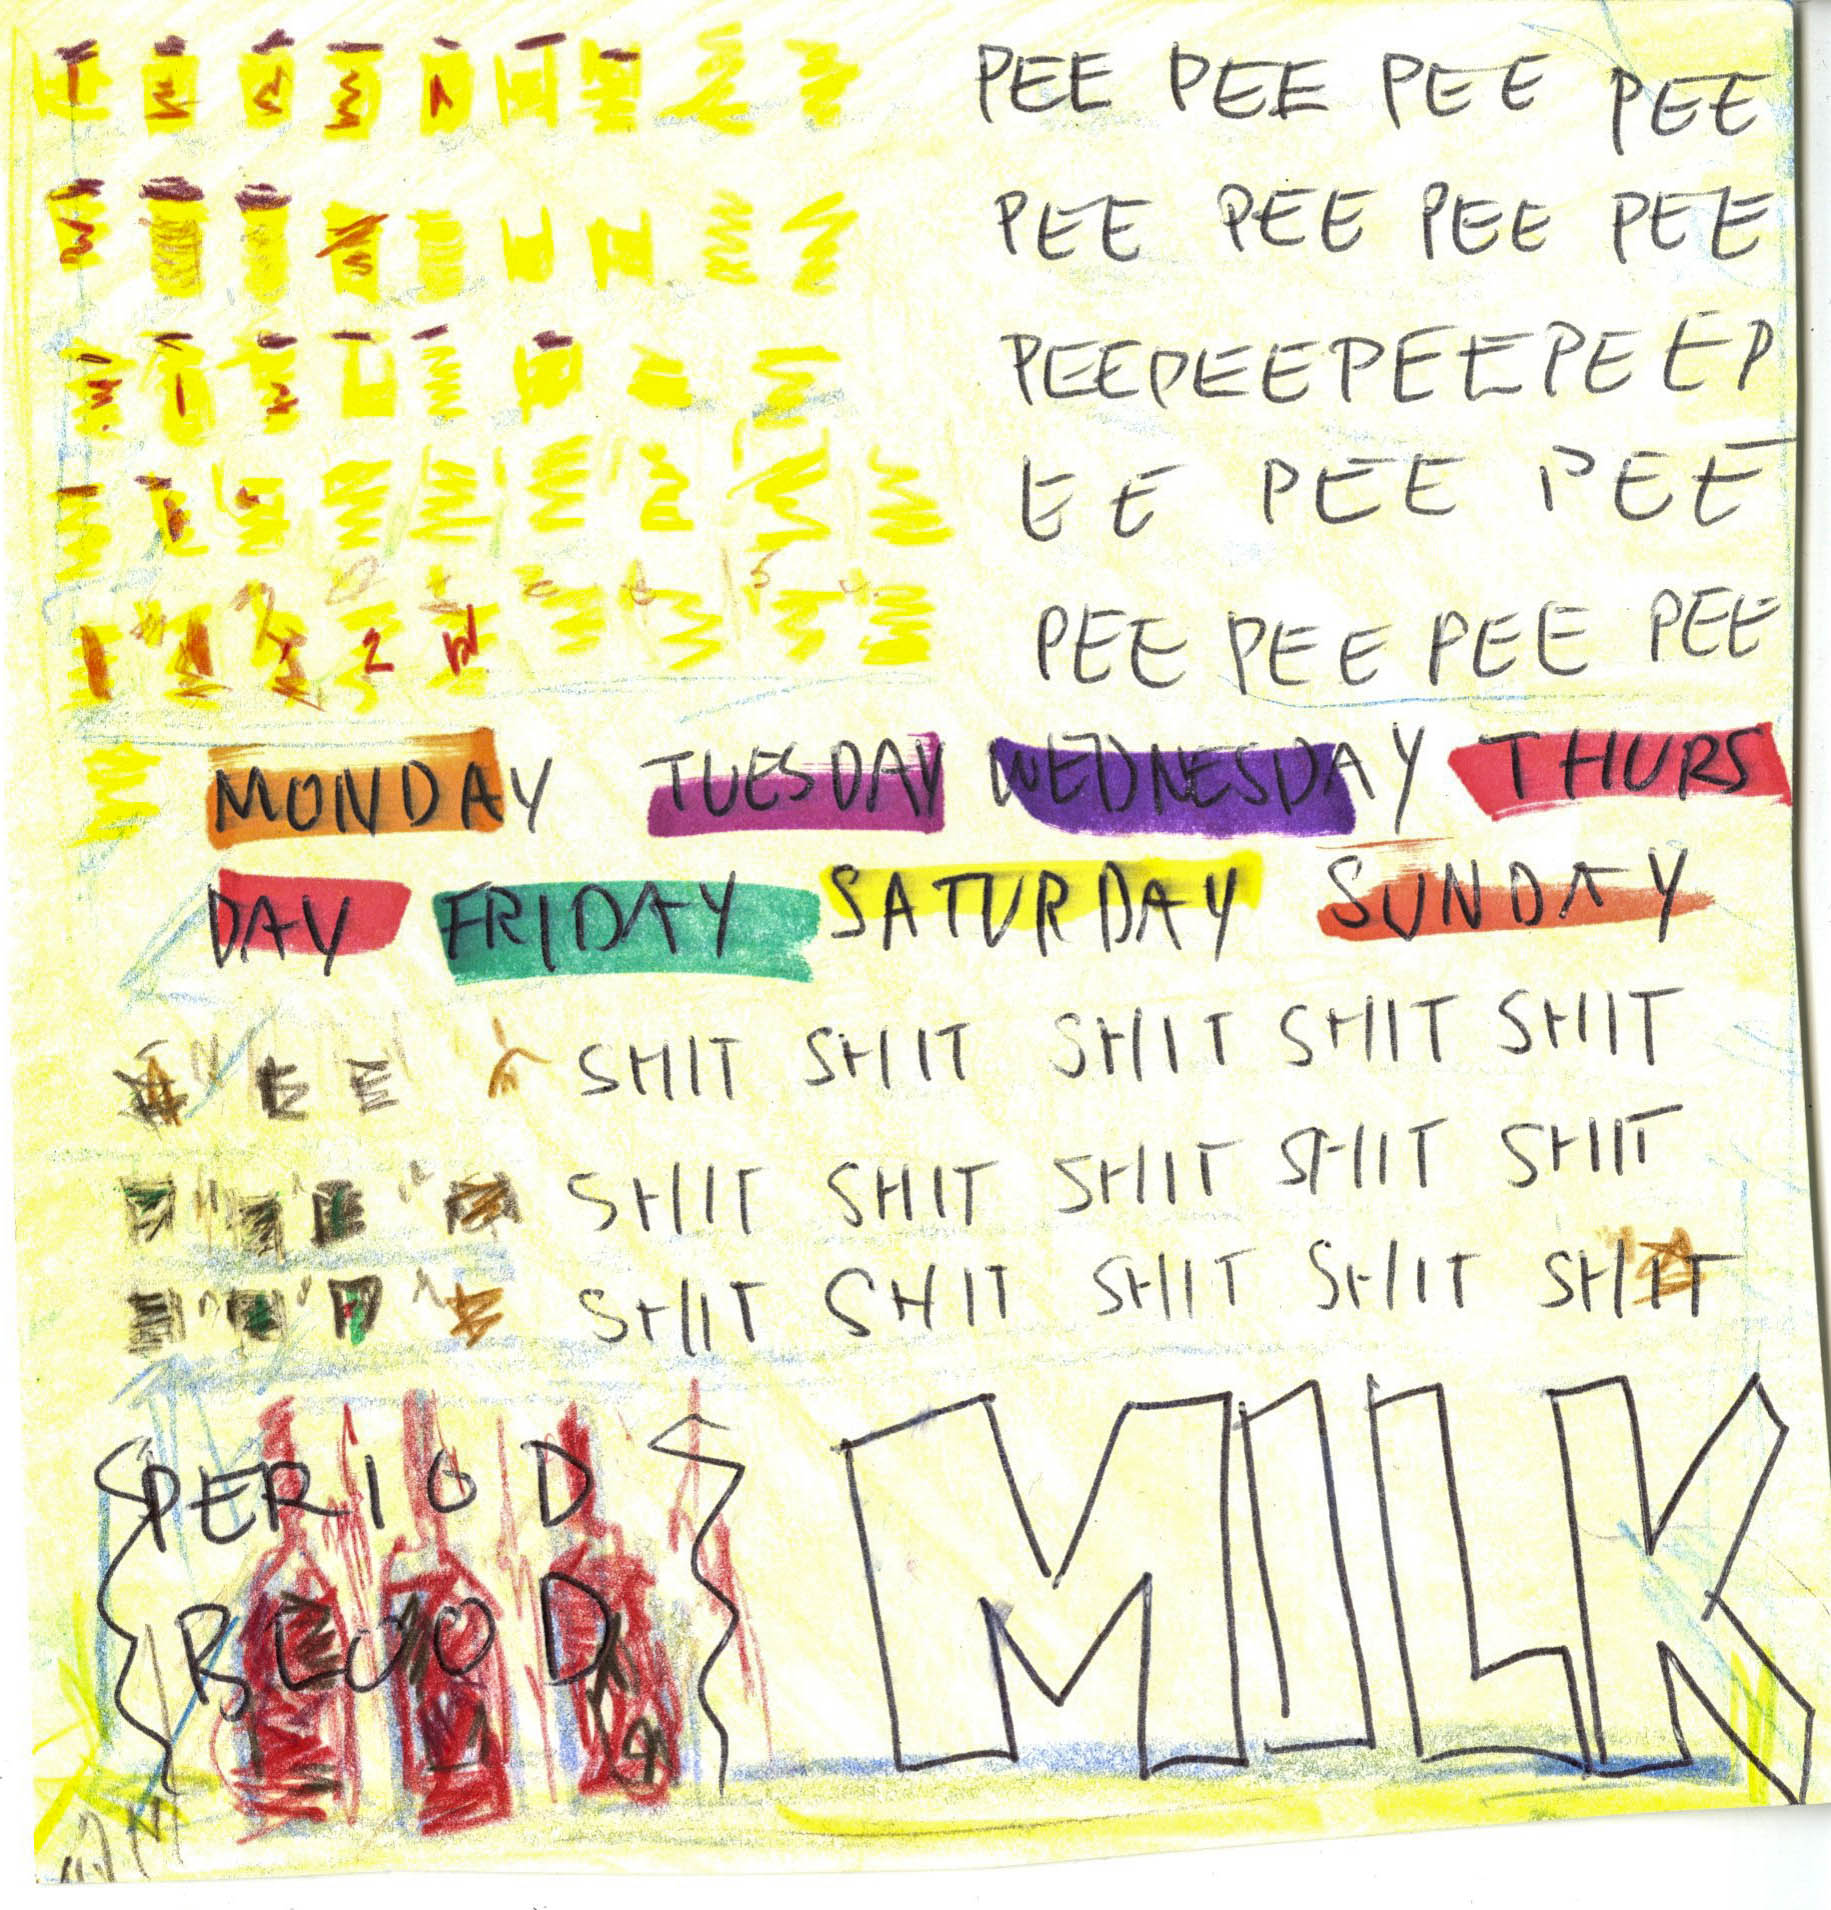 PEE PEE PEE PEE
PEE PEE PEE PEE
PEEPEEPEEPEEP
EE PEE PEE
PEE PEE PEE PEE
MONDAY TUESDAY WEDNESDAY THURS
DAY FRIDAY SATURDAY SUNDAY
SHIT SHIT SHIT SHIT SHIT
SHIT SHIT SHIT SHIT SHIT
SHIT SHIT SHIT SHIT SHIT
PERIOD
BLOOD
MILK